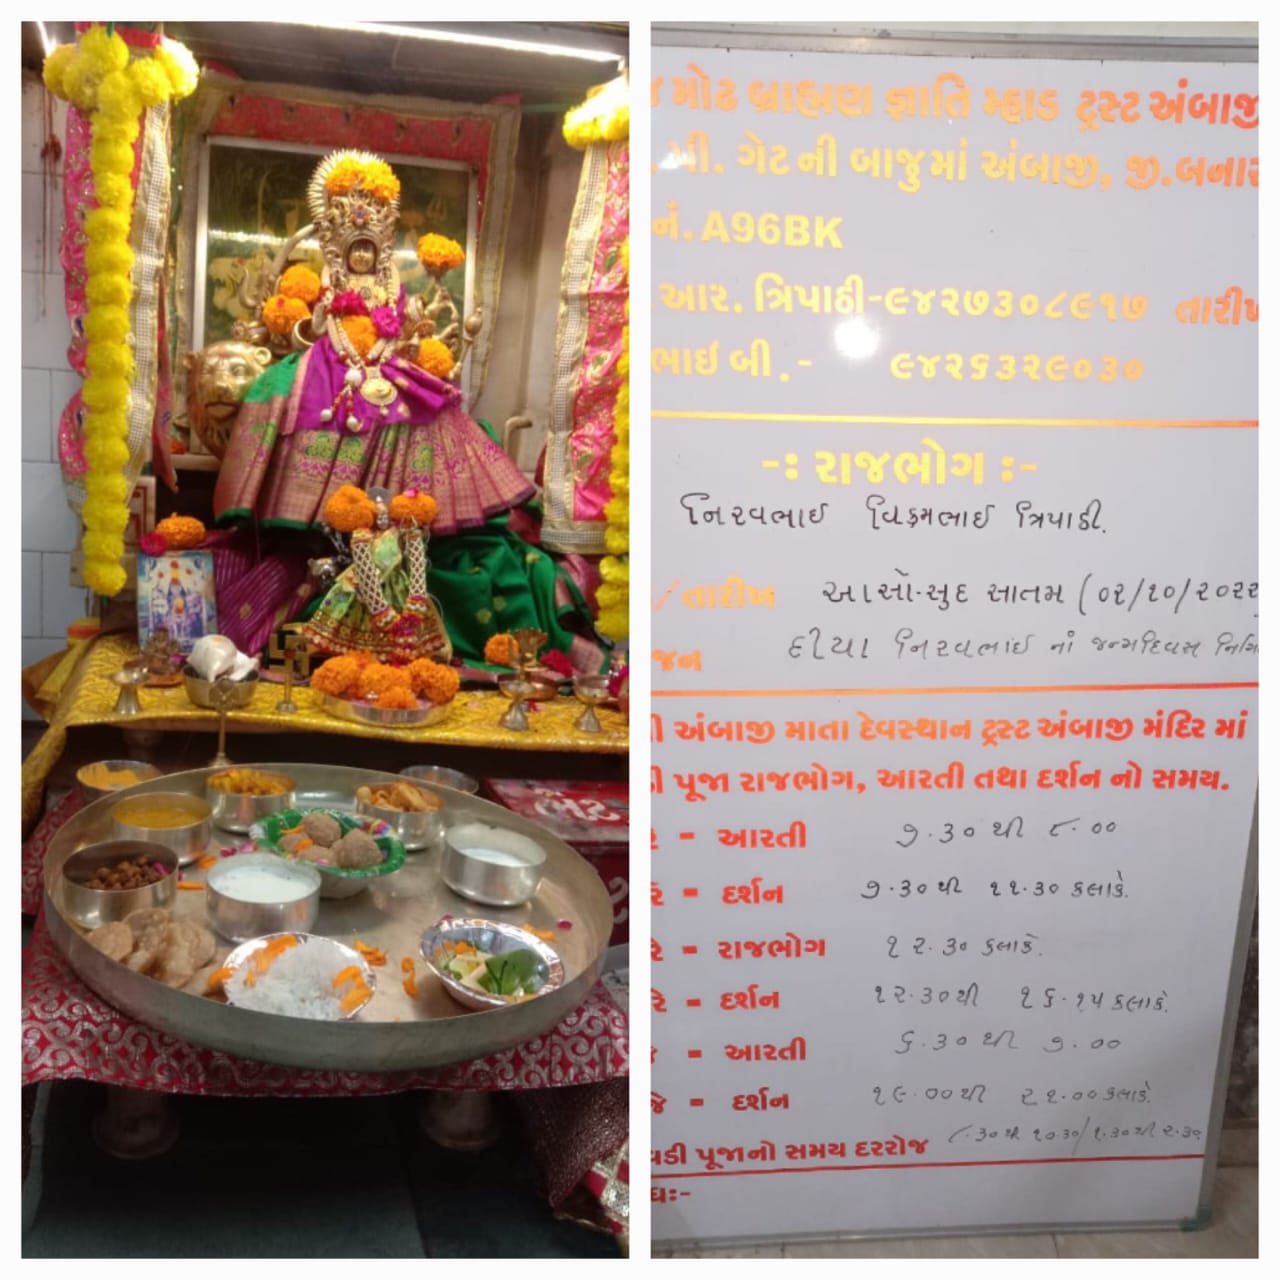 ભેટ
મોઢ બ્રાહ્મણ જ્ઞાતિ મ્હાડ ટ્રસ્ટ અંબાજી
પી. ગેટ ની બાજુમાં અંબાજી, જી.બનાસ
નં. A96BK
આર. ત્રિપાઠી-૯૪૨૭૩૦૮૯૧૭ તારીખ
ભાઈ બી. - ૯૪૨૬૩૨૯૦૩૦
-: રાજભોગ :-
નિરવભાઈ વિક્રમભાઈ ત્રિપાઠી.
/ તારીખ આસો-સુદ સાતમ (૦૨/૧૦/૨૦૨૨
જન દીયા નિરવભાઈ નાં જન્મદિવસ
અંબાજી માતા દેવસ્થાન ટ્રસ્ટ અંબાજી મંદિર માં
પૂજા રાજભોગ, આરતી તથા દર્શન નો સમય.
- આરતી ૭.૩૦ થી ૮.૦૦
- દર્શન ૭.૩૦ થી ૧૧.૩૦ કલાકે.
- રાજભોગ ૧૨.૩૦ કલાકે.
- દર્શન ૧૨.૩૦ થી ૧૬.૧૫ કલાકે.
- આરતી ૬.૩૦ થી ૭.૦૦
- દર્શન ૧૯.૦૦ થી ૨૧.૦૦ કલાકે.
વડી પૂજાનો સમય દરરોજ ૮.૩૦ થી ૧૦.૩૦/૧.૩૦ થી ૨.૩૦
ધઃ-